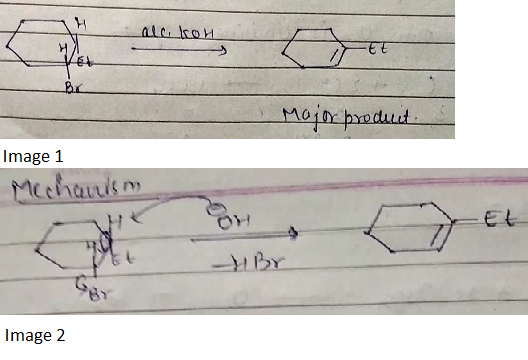 H
alc. KOH
H
Et
Et
Br
Major product.
Image 1
Mechanism
H
OH
Et
H
Et
-HBr
Br
Image 2